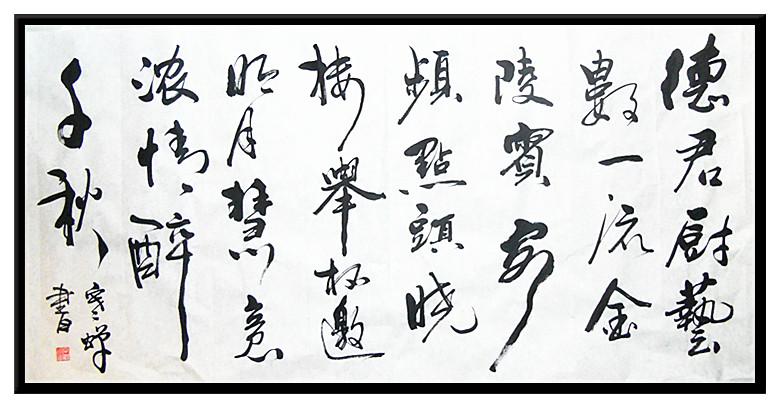 德君厨藝
數一流金
陵賓客
頻點頭晓
楼舉杯邀
明月慧意
浓情醉
千秋
寒蝉
書